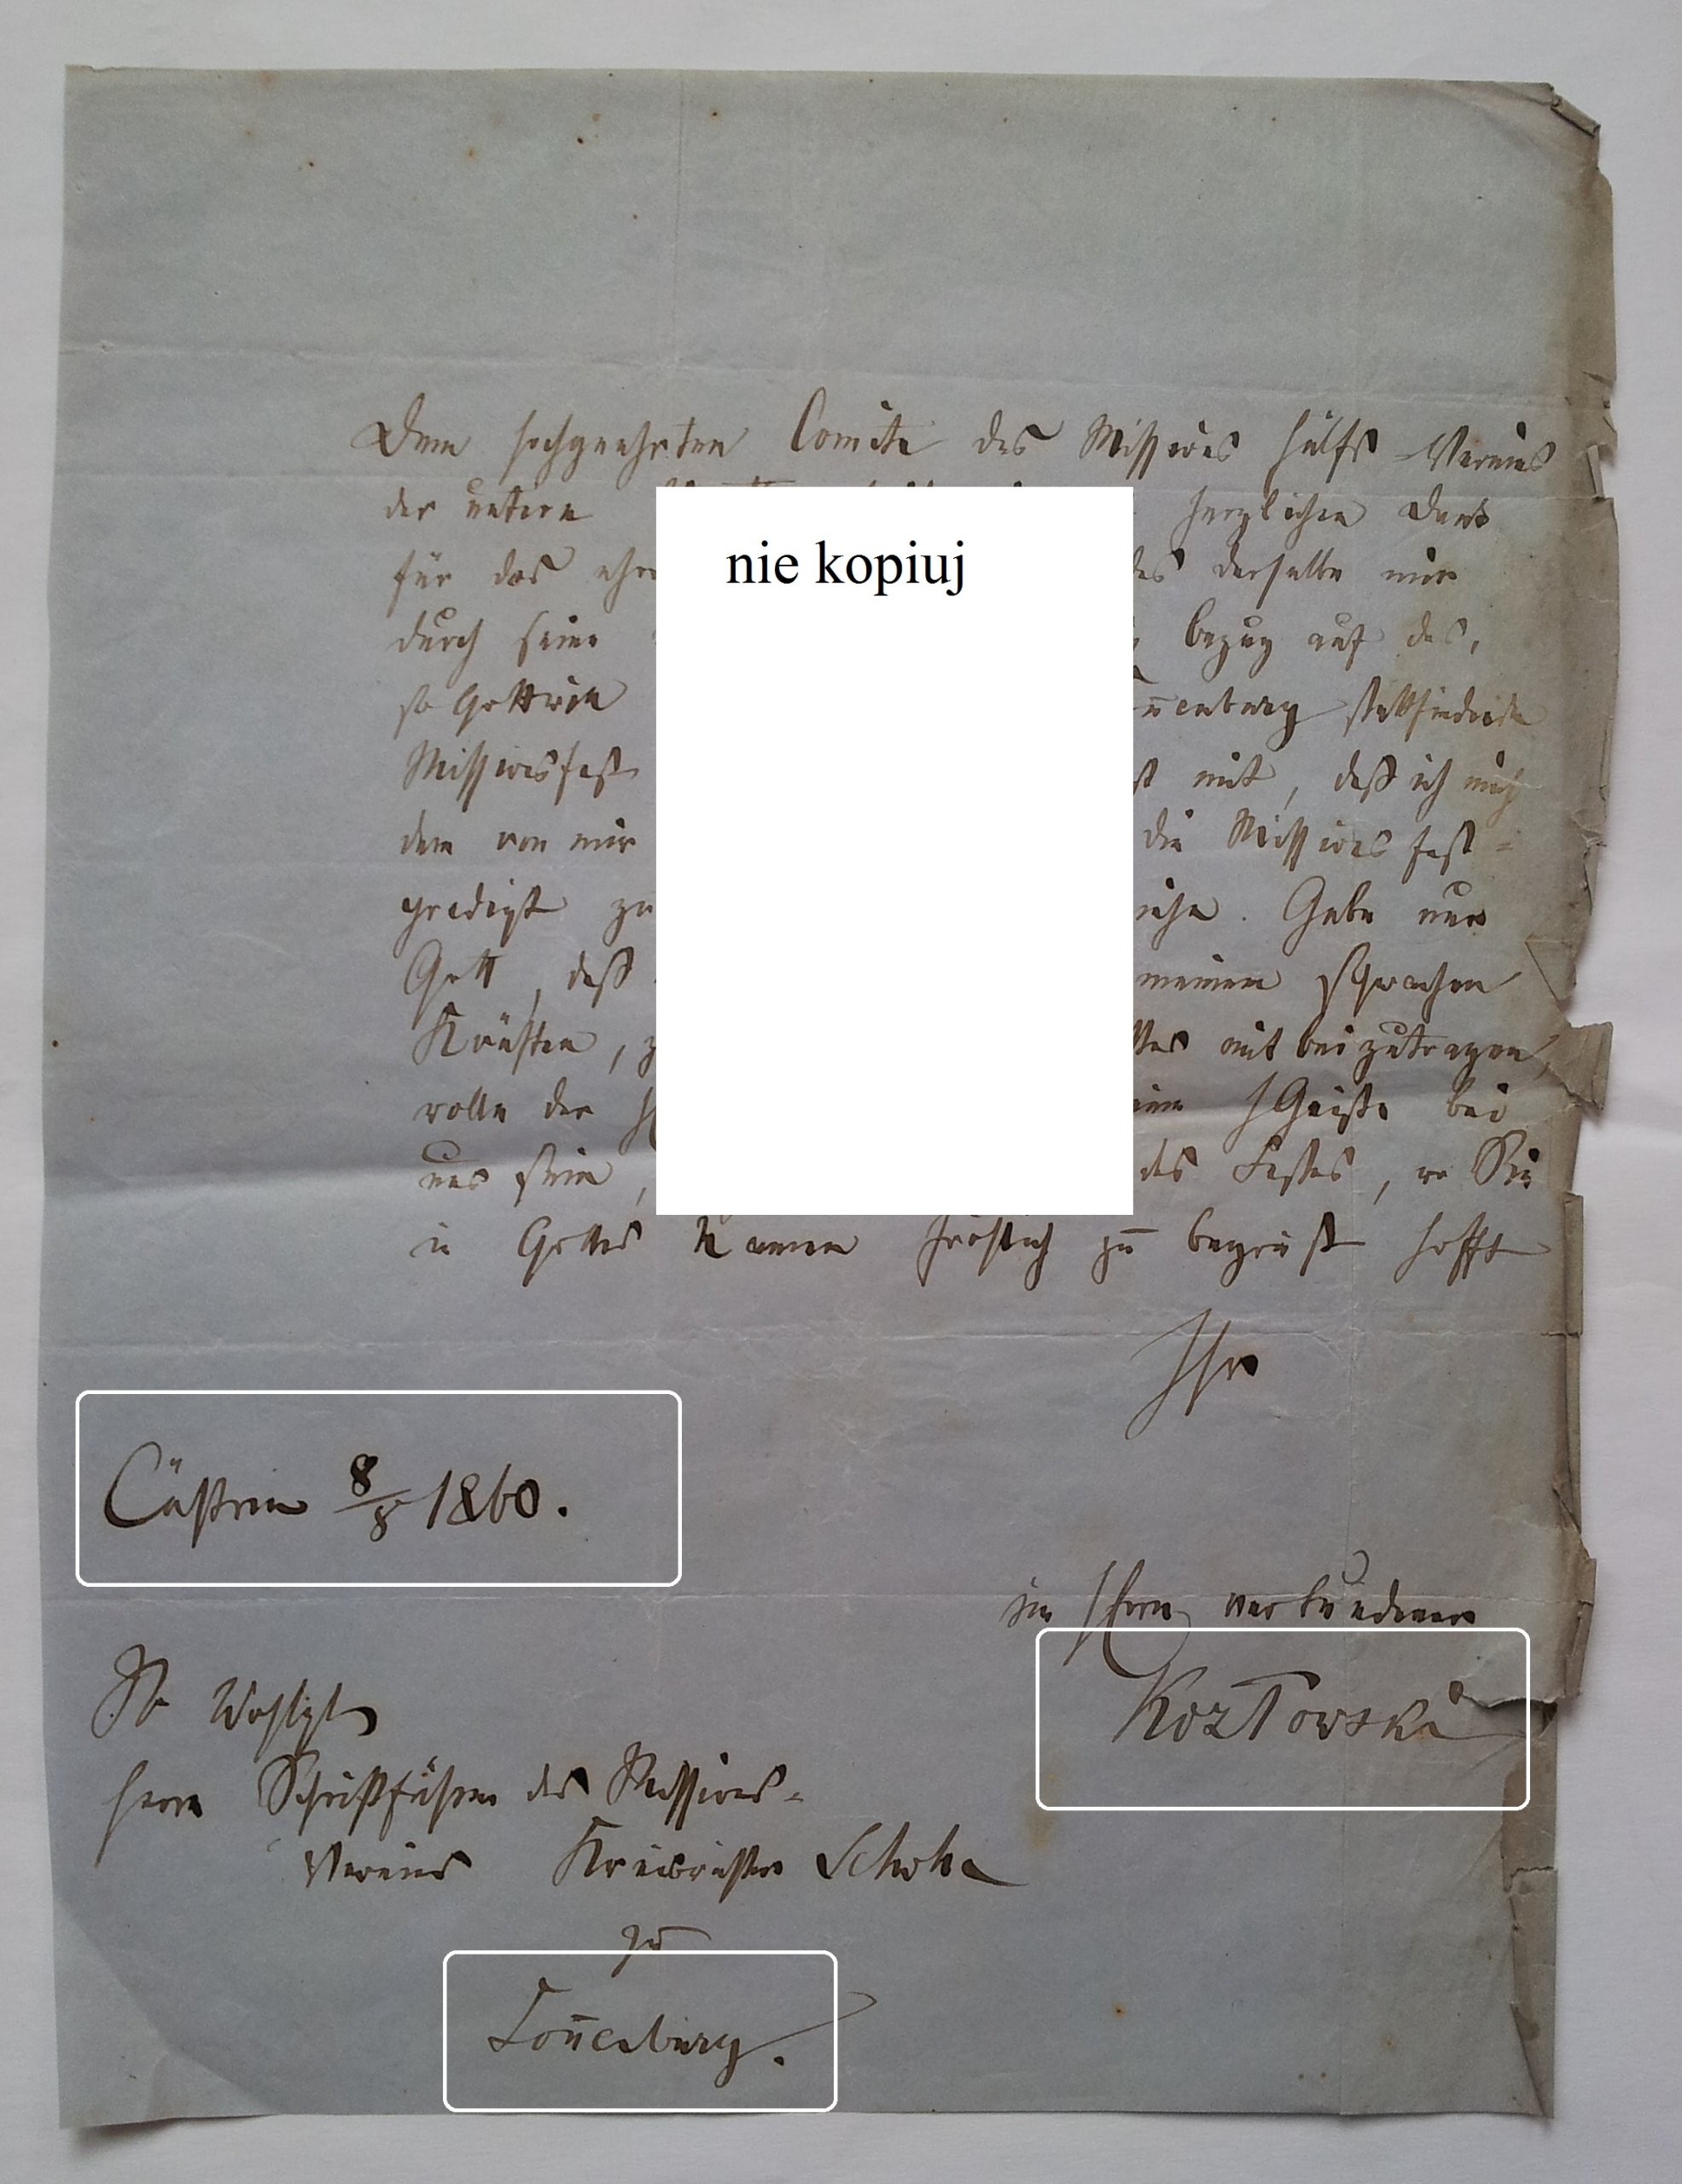 Dem hochgeehrten Comité des Missions Hülfs-Vereins
der untere herzlichen Dank
nie kopiuj
für das derselbe mir
durch seine Bezug auf das,
so Gott will nenburg stattfindende
Missionsfest mit, daß ich mich
dem von mir die Missions fest-
predigt zu . Gebe nur
Gott, daß meinen schwachen
Kräften, mit beizutragen,
wolle der HGeiste bei
uns sein, des Festes, wo Sie
in Gottes Namen fröhlich zu begrüßt hofft
Ihr
Cüstrin 8/8 1860.
im HErrn verbundener
Kozłowski
Sr Wohlgb
Herrn Schriftführer des Missions-
Vereins Kreisrichter
zu
Soñenburg.